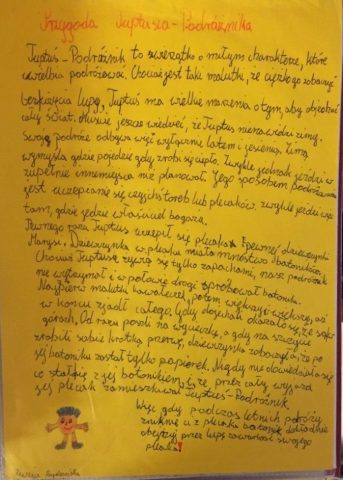 Przygoda Tuptusia-Podróżnika
Tuptuś-Podróżnik to zwierzątko o miłym charakterze, które
uwielbia podróżować. Chociaż jest taki malutki, że ciężko go zobaczyć
bez użycia lupy, Tuptuś ma wielkie marzenia o tym, aby objechać
cały świat. Musicie jeszcze wiedzieć, że Tuptuś nienawidzi zimy.
Swoje podróże odbywa więc wyłącznie latem i jesienią. Zimą
wymyśla gdzie pojedzie gdy zrobi się ciepło. Zwykle jednak jeździ w
zupełnie inne miejsca niż planował. Jego sposobem podróżowania
jest uczepianie się czyichś toreb lub plecaków, zwykle jeździ więc
tam, gdzie jedzie właściciel bagażu.
Pewnego razu Tuptuś uczepił się plecaka pewnej dziewczynki
Marysi. Dziewczynka w plecaku miała mnóstwo batoników.
Chociaż Tuptusie żywią się tylko zapachami, nasz podróżnik
nie wytrzymał i w połowie drogi spróbował batonika.
Najpierw malutki kawałeczek, potem większy i większy, aż
w końcu zjadł całego. Gdy dojechali okazało się, że są w
górach. Od razu poszli na wycieczkę, a gdy na szczycie
zrobili sobie krótką przerwę, dziewczynka zobaczyła, że po
jej batoniku został tylko papierek. Nigdy nie dowiedziała się
co stało się z jej batonikiem i że przez cały wyjazd
jej plecak zamieszkiwał Tuptuś-Podróżnik.
Więc gdy podczas letnich podróży
zniknie u z plecaka batonik dokładnie
obejrzyj przez lupę zawartość swojego
plecaka!